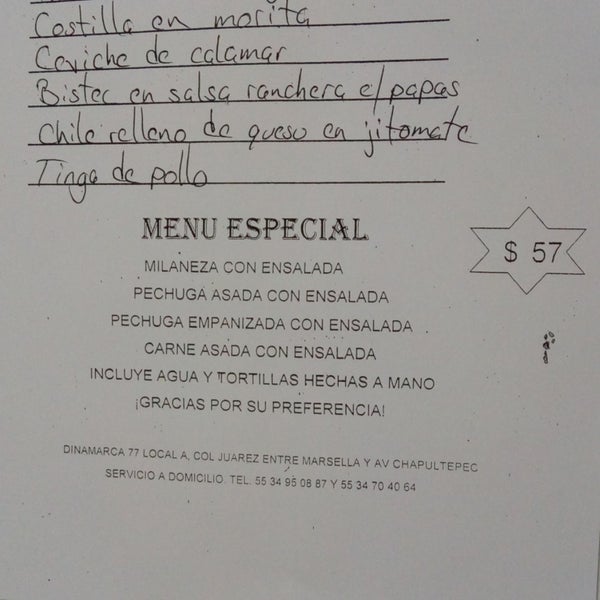 Costilla en morita
Ceviche de calamar
Bistec en salsa ranchera c/papas
Chile relleno de queso en jitomate
Tinga de pollo
MENU ESPECIAL
$ 57
MILANEZA CON ENSALADA
PECHUGA ASADA CON ENSALADA
PECHUGA EMPANIZADA CON ENSALADA
CARNE ASADA CON ENSALADA
INCLUYE AGUA Y TORTILLAS HECHAS A MANO
¡GRACIAS POR SU PREFERENCIA!
DINAMARCA 77 LOCAL A, COL JUAREZ ENTRE MARSELLA Y AV CHAPULTEPEC
SERVICIO A DOMICILIO. TEL. 55 34 95 08 87 Y 55 34 70 40 64